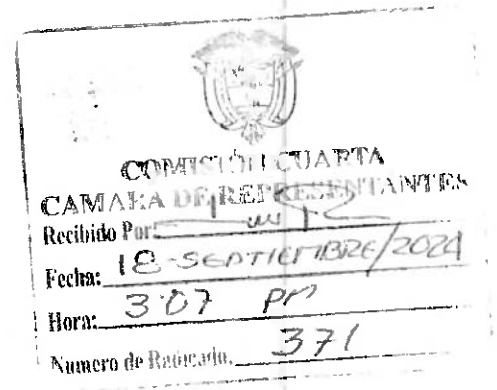 COMISIÓN CUARTA
CAMARA DE REPRESENTANTES
Recibido Por:
Fecha: 18-SEPTIEMBRE/2024
Hora: 3:07 PM
Numero de Radicado. 371